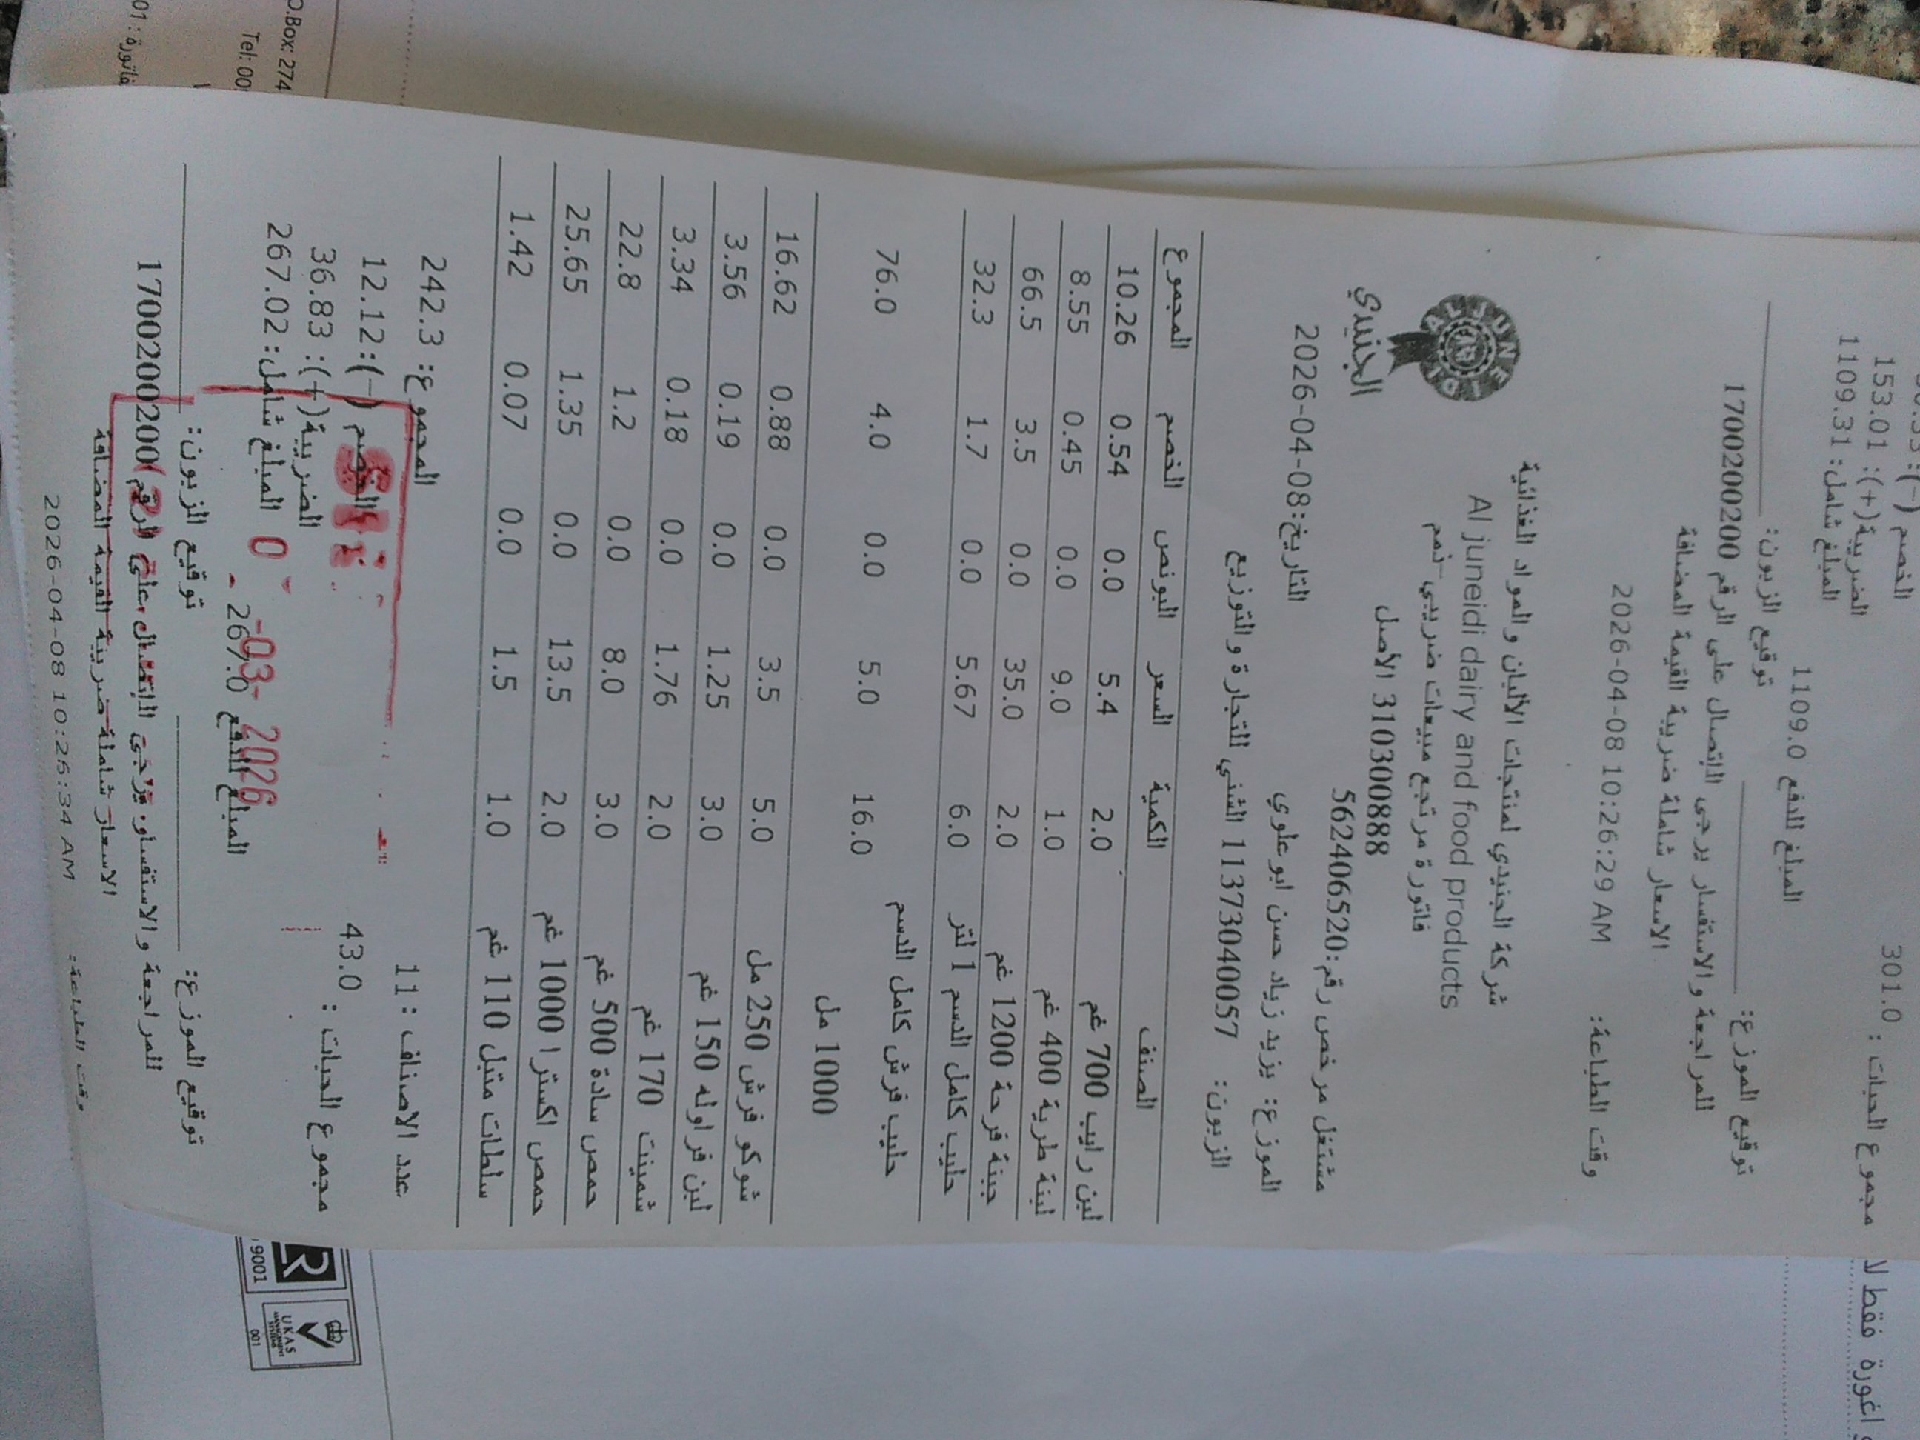 153.01 :(+)الضريبة
1109.31 :المبلغ شامل
301.0 : مجموع الحبات
المبلغ للدفع 1109.0
توقيع الزبون: توقيع الموزع:
للمراجعة والاستفسار يرجى الاتصال على الرقم 1700200200
الاسعار شاملة ضريبة القيمة المضافة
وقت الطباعة: 2026-04-08 10:26:29 AM
AL JUNEIDI
الجنيدي
شركة الجنيدي لمنتجات الألبان والمواد الغذائية
Al juneidi dairy and food products
فاتورة مرتجع مبيعات ضريبي-ذمم
310300888 الأصل
مشتغل مرخص رقم:562406520
التاريخ:2026-04-08
الموزع: يزيد زياد حسن ابو علوي
الزبون: 11373040057 الشني للتجارة والتوزيع
الصنف الكمية السعر البونص الخصم المجموع
لبن رايب 700 غم 2.0 5.4 0.0 0.54 10.26
لبنة طرية 400 غم 1.0 9.0 0.0 0.45 8.55
جبنة فرحة 1200 غم 2.0 35.0 0.0 3.5 66.5
حليب كامل الدسم 1 لتر 6.0 5.67 0.0 1.7 32.3
حليب فرش كامل الدسم 16.0 5.0 0.0 4.0 76.0
1000 مل
شوكو فرش 250 مل 5.0 3.5 0.0 0.88 16.62
لبن فراوله 150 غم 3.0 1.25 0.0 0.19 3.56
شمينت 170 غم 2.0 1.76 0.0 0.18 3.34
حمص سادة 500 غم 3.0 8.0 0.0 1.2 22.8
حمص اكسترا 1000 غم 2.0 13.5 0.0 1.35 25.65
سلطات متبل 110 غم 1.0 1.5 0.0 0.07 1.42
عدد الاصناف : 11 المجموع: 242.3
مجموع الحبات : 43.0 الخصم (-): 12.12
الضريبة(+): 36.83
المبلغ شامل: 267.02
المبلغ للدفع 267.0
-03- 2026
توقيع الزبون: توقيع الموزع:
للمراجعة والاستفسار يرجى الاتصال على الرقم 1700200200
الاسعار شاملة ضريبة القيمة المضافة
وقت الطباعة: 2026-04-08 10:26:34 AM
9001
UKAS
001